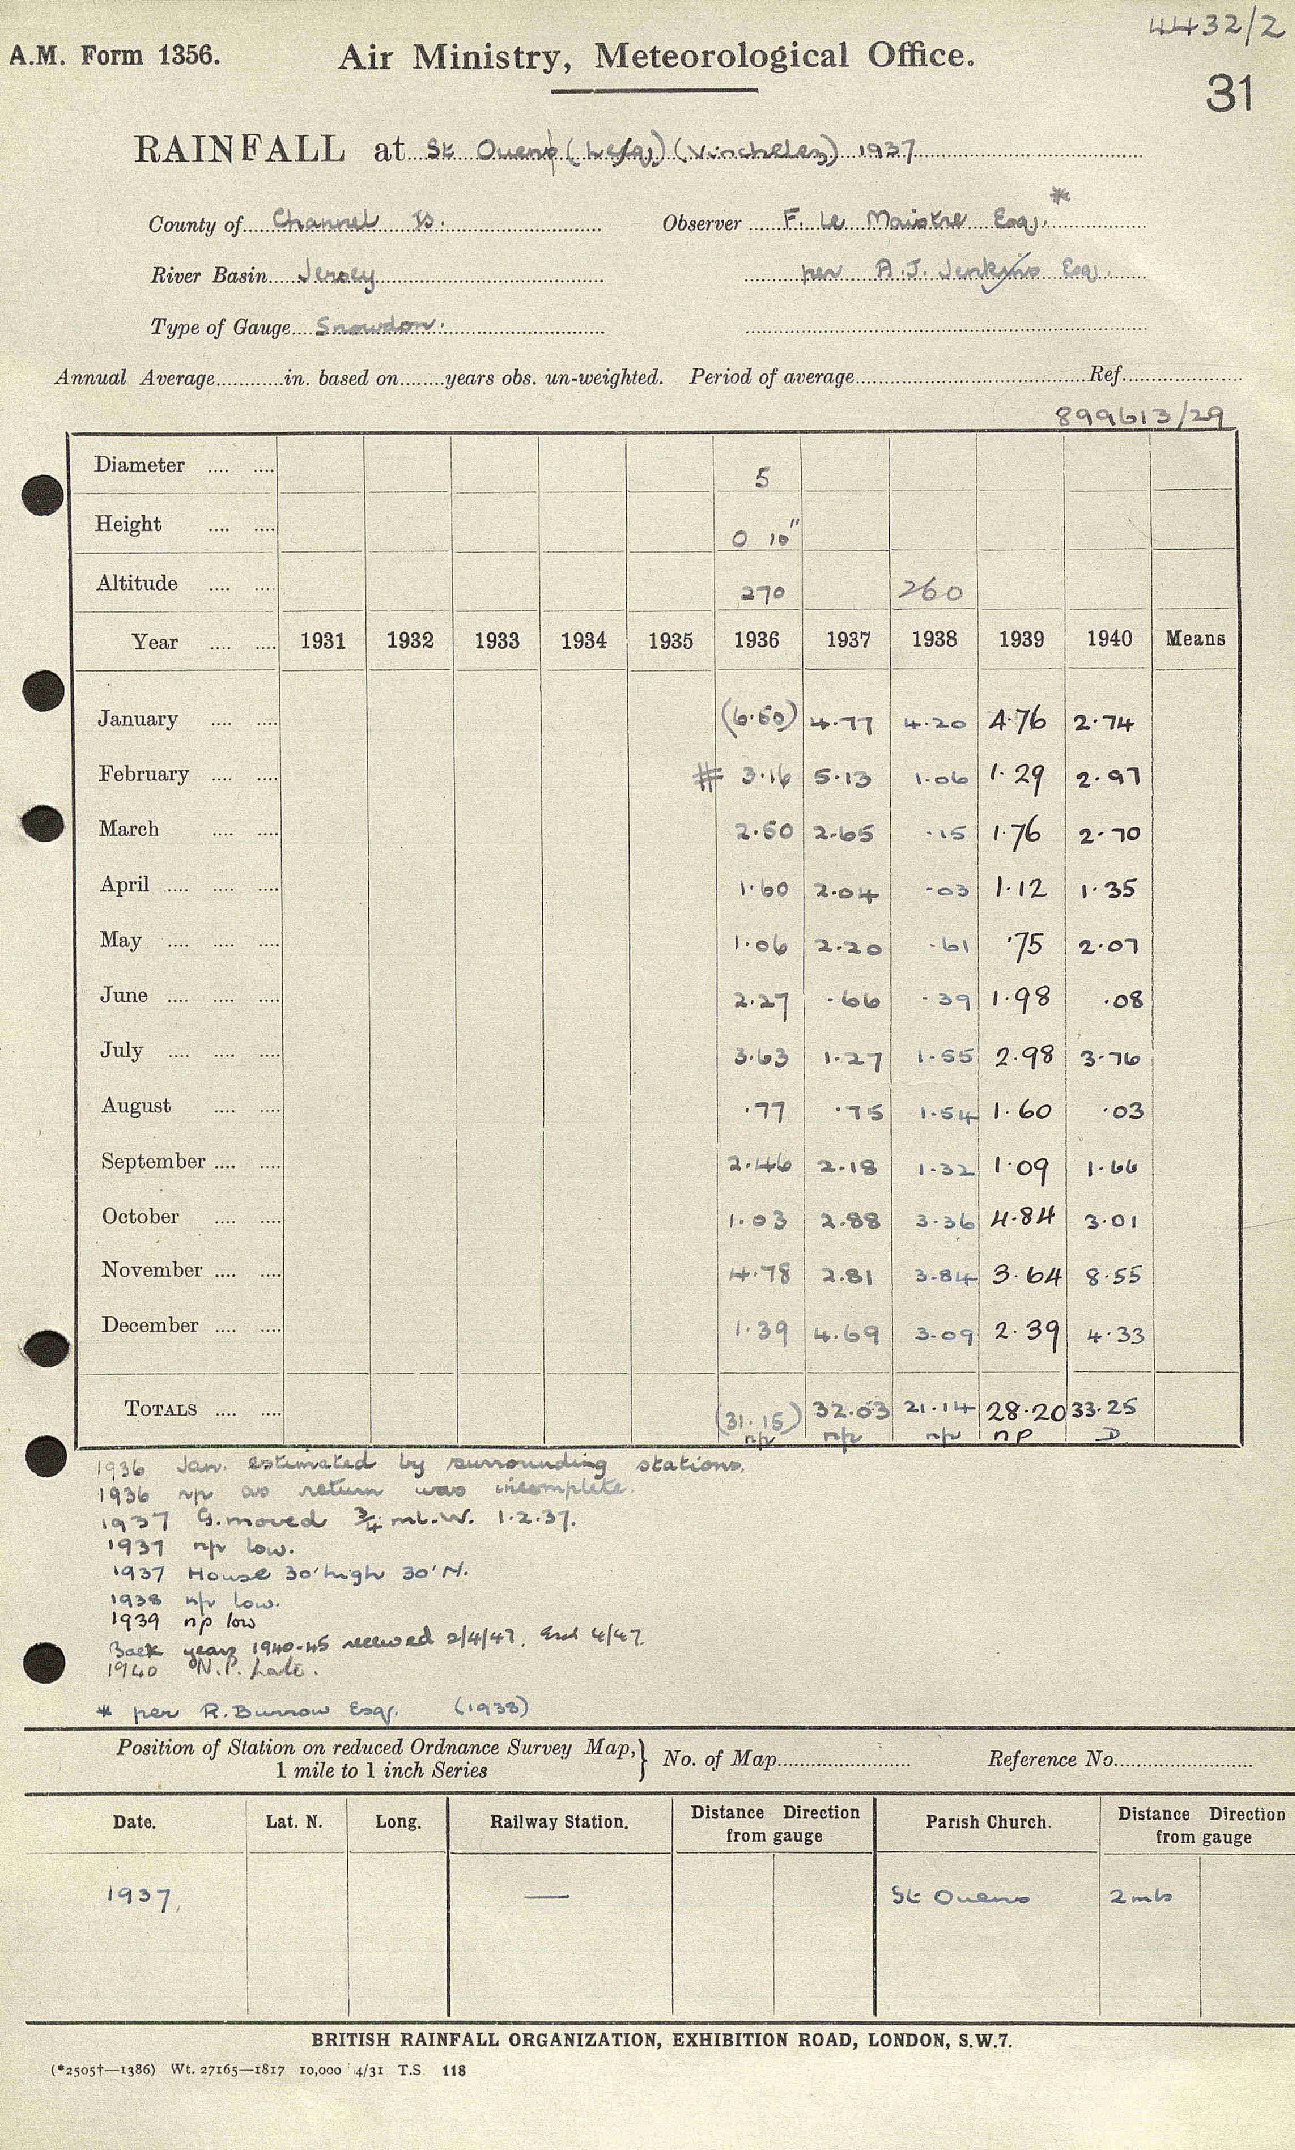 4432/2
A.M. Form 1356. Air Ministry, Meteorological Office.
31
RAINFALL at St Ouens (Vincheles) 1937
County of Channel Is. Observer F. Le Maistre Esq. *
River Basin Jersey per A.J. Jenkins Esq.
Type of Gauge Snowdon.
Annual Average in. based on years obs. un-weighted. Period of average Ref.
899613/29
Diameter 5
Height 0 10"
Altitude 270 260
Year 1931 1932 1933 1934 1935 1936 1937 1938 1939 1940 Means
January (6.50) 4.77 4.20 4.76 2.74
February # 3.16 5.13 1.06 1.29 2.97
March 2.50 2.65 .15 1.76 2.70
April 1.60 2.04 .03 1.12 1.35
May 1.06 2.20 .61 .75 2.07
June 2.27 .66 .39 1.98 .08
July 3.63 1.27 1.55 2.98 3.76
August .77 .75 1.54 1.60 .03
September 2.46 2.18 1.32 1.09 1.66
October 1.03 2.88 3.36 4.84 3.01
November 4.78 2.81 3.84 3.64 8.55
December 1.39 4.69 3.09 2.39 4.33
TOTALS (31.15) 32.03 21.14 28.20 33.25
np np np np D
1936 Jan. estimated by surrounding stations.
1936 np as return was incomplete.
1937 G. moved 3/4 ml. W. 1.2.37.
1937 np low.
1937 House 30' high 30' N.
1938 np low.
1939 np low
Back years 1940-45 received 2/4/47. 4/47.
1940 N.P. Late.
* per R. Burrow Esq. (1938)
Position of Station on reduced Ordnance Survey Map, } No. of Map Reference No.
1 mile to 1 inch Series
Date. Lat. N. Long. Railway Station. Distance Direction from gauge Parish Church. Distance Direction from gauge
1937. — St Ouens 2 mls
BRITISH RAINFALL ORGANIZATION, EXHIBITION ROAD, LONDON, S.W.7.
(*2505†—1386) Wt. 27165—1817 10,000 4/31 T.S 118